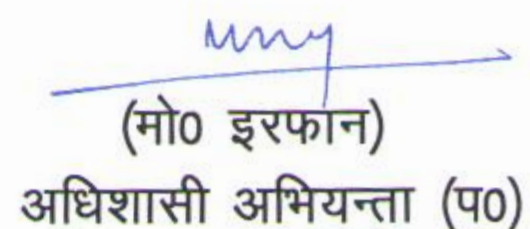 (मो0 इरफान)
अधिशासी अभियन्ता (प0)